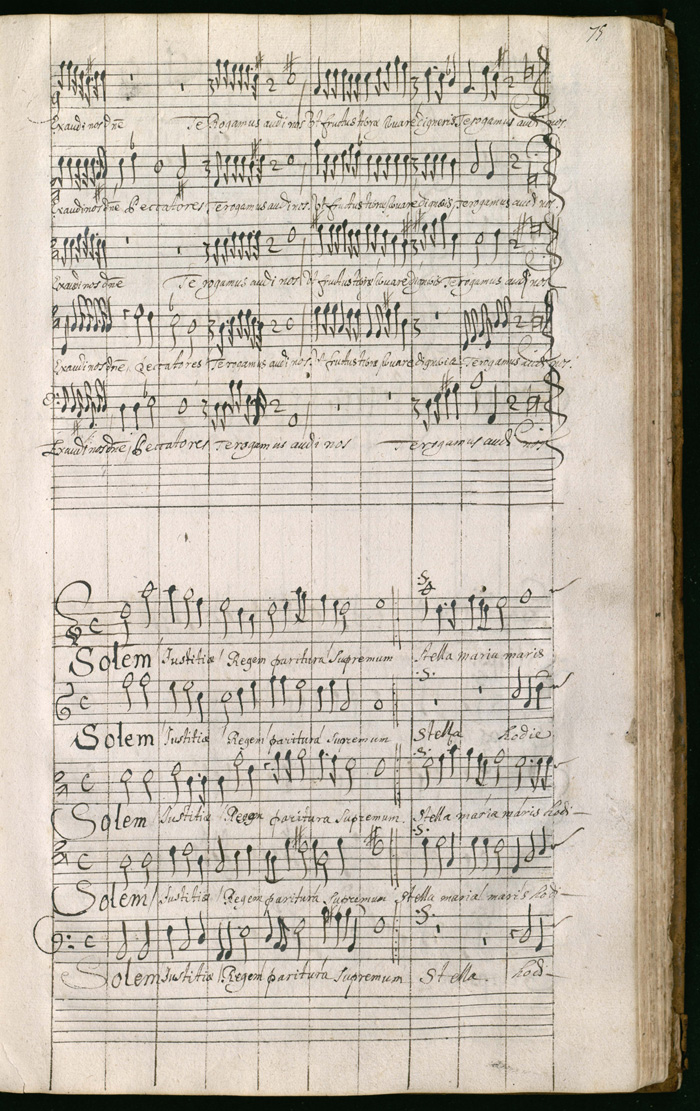 75
Exaudi nos dñe Te Rogamus audi nos Vt fructus terræ digneris Te rogamus audi nos.
Exaudi nos dñe Peccatores Te rogamus audi nos. Vt fructus digneris, Te rogamus audi nos.
Exaudi nos dñe Te rogamus audi nos. Vt fructus digneris Te rogamus audi nos.
Exaudi nos dñe, Peccatores Te rogamus audi nos. Vt fructus Te rogamus audi nos.
Exaudi nos dñe, Peccatores Te rogamus audi nos Te rogamus audi nos
Solem Iustitiæ Regem paritura Supremum Stella maria maris
Solem Iustitiæ Regem paritura Supremum Stella hodie
Solem Iustitiæ Regem paritura Supremum. Stella maria maris hodi-
Solem Iustitiæ Regem paritura Supremum Stella maria maris hodi-
Solem Iustitiæ Regem paritura Supremum Stella. hodi-